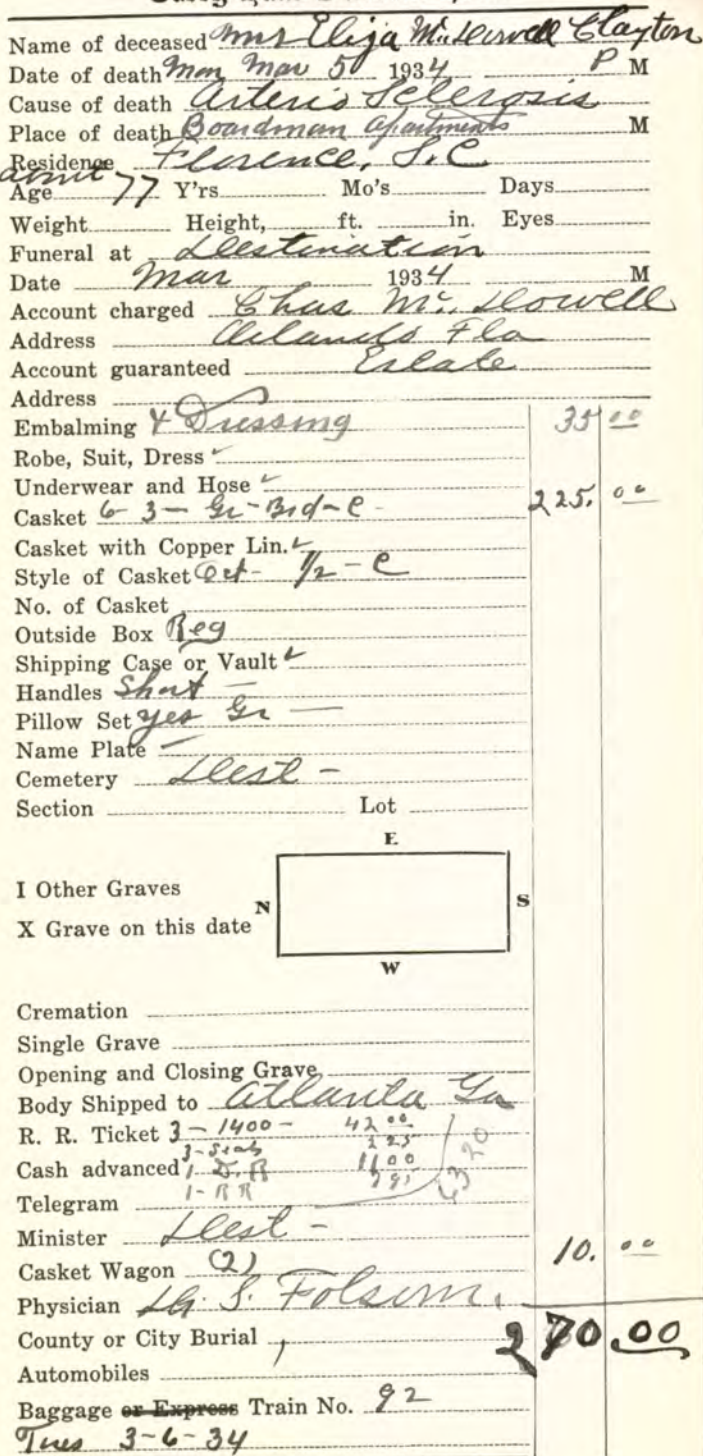 Name of deceased Mrs Eliza McDowell Clayton
Date of death Mon Mar 5 1934 P M
Cause of death Arterio Sclerosis
Place of death Boardman apartments M
Residence Florence, S.C
about
Age 77 Y'rs Mo's Days
Weight Height, ft. in. Eyes
Funeral at Destination
Date Mar 1934 M
Account charged Chas Mc. Dowell
Address Orlando Fla
Account guaranteed Estate
Address
Embalming & Dressing 35 00
Robe, Suit, Dress ✓
Underwear and Hose ✓
Casket 6-3- Gr-Brd-C- 225. 00
Casket with Copper Lin. ✓
Style of Casket Oct- 1/2-C
No. of Casket
Outside Box Reg
Shipping Case or Vault ✓
Handles Short —
Pillow Set yes Gr —
Name Plate —
Cemetery Dest -
Section Lot
E
I Other Graves
N S
X Grave on this date
W
Cremation
Single Grave
Opening and Closing Grave
Body Shipped to Atlanta Ga
R. R. Ticket 3-1400- 42 00
3-Seats 2 25
Cash advanced 1 D.R 11 00
63 20
1-RR
Telegram
Minister Dest -
Casket Wagon (2) 10. 00
Physician S. Folsom.
County or City Burial 270.00
Automobiles
Baggage or Express Train No. 92
Tues 3-6-34